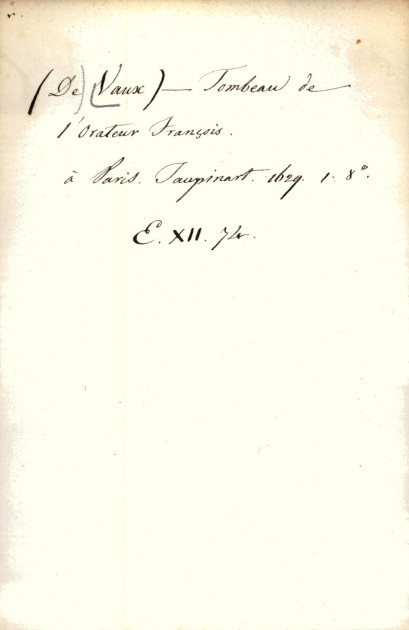 (De) Vaux) — Tombeau de
l'Orateur François.
à Paris. Taupinart. 1629. 1. 8°.
E. XII. 74.